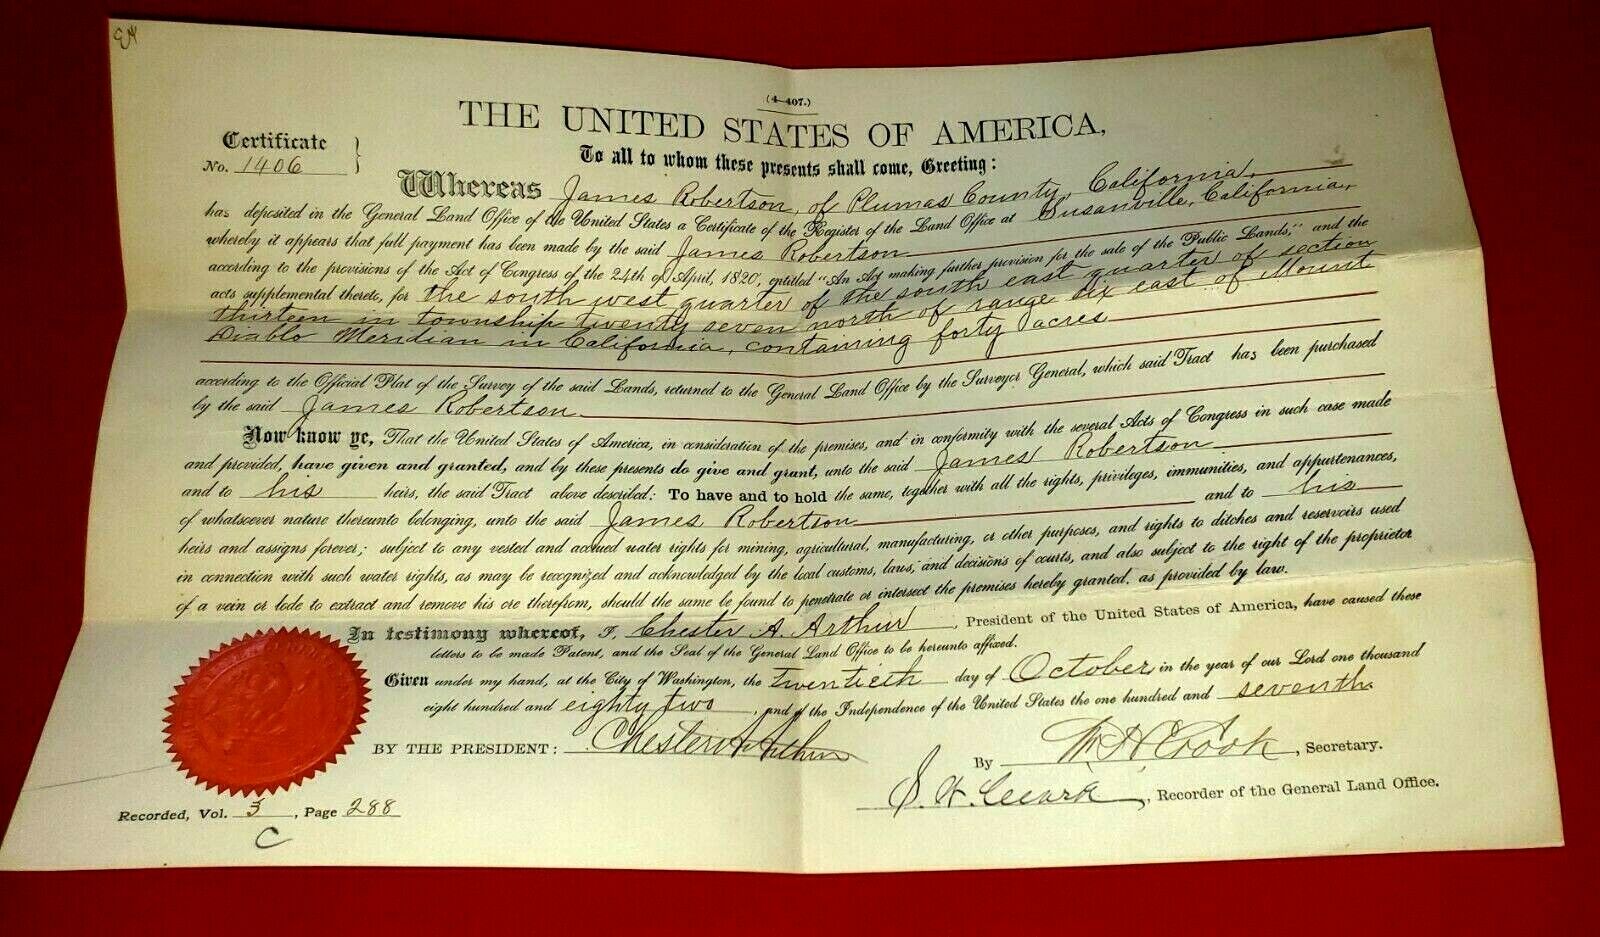 (4—407.)
THE UNITED STATES OF AMERICA,
Certificate
No. 1406
To all to whom these presents shall come, Greeting:
Whereas James Robertson, of Plumas County, California,
has deposited in the General Land Office of the United States a Certificate of the Register of the Land Office at Susanville, California,
whereby it appears that full payment has been made by the said James Robertson
according to the provisions of the Act of Congress of the 24th of April, 1820, entitled "An Act making further provision for the sale of the Public Lands," and the
acts supplemental thereto, for the south west quarter of the south east quarter of section
thirteen in township twenty seven north of range six east of Mount
Diablo Meridian in California, containing forty acres
according to the Official Plat of the Survey of the said Lands, returned to the General Land Office by the Surveyor General, which said Tract has been purchased
by the said James Robertson
Now know ye, That the United States of America, in consideration of the premises, and in conformity with the several Acts of Congress in such case made
and provided, have given and granted, and by these presents do give and grant, unto the said James Robertson
and to his heirs, the said Tract above described: To have and to hold the same, together with all the rights, privileges, immunities, and appurtenances,
of whatsoever nature thereunto belonging, unto the said James Robertson and to his
heirs and assigns forever; subject to any vested and accrued water rights for mining, agricultural, manufacturing, or other purposes, and rights to ditches and reservoirs used
in connection with such water rights, as may be recognized and acknowledged by the local customs, laws, and decisions of courts, and also subject to the right of the proprietor
of a vein or lode to extract and remove his ore therefrom, should the same be found to penetrate or intersect the premises hereby granted, as provided by law.
In testimony whereof, I, Chester A. Arthur, President of the United States of America, have caused these
letters to be made Patent, and the Seal of the General Land Office to be hereunto affixed.
Given under my hand, at the City of Washington, the twentieth day of October in the year of our Lord one thousand
eight hundred and eighty two, and of the Independence of the United States the one hundred and seventh.
BY THE PRESIDENT: Chester A. Arthur
By Wm H Crook, Secretary.
S. W. Clark, Recorder of the General Land Office.
Recorded, Vol. 3, Page 288
C